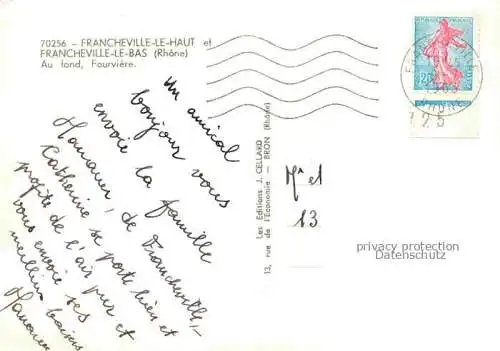 70256 – FRANCHEVILLE-LE-HAUT et
FRANCHEVILLE-LE-BAS (Rhône)
Au fond, Fourvière.
Un amical
bonjour vous
envoie la famille
Hamauer, de Francheville,
Catherine se porte bien et
profite de l'air pur et
vous envoie ses
meilleurs baisers
Hamauer
Les Editions J. CELLARD
13, rue de l'Economie — BRON (Rhône)
Mr et
13
REPUBLIQUE FRANÇAISE
0,20
RHONE
2 5
privacy protection
Datenschutz